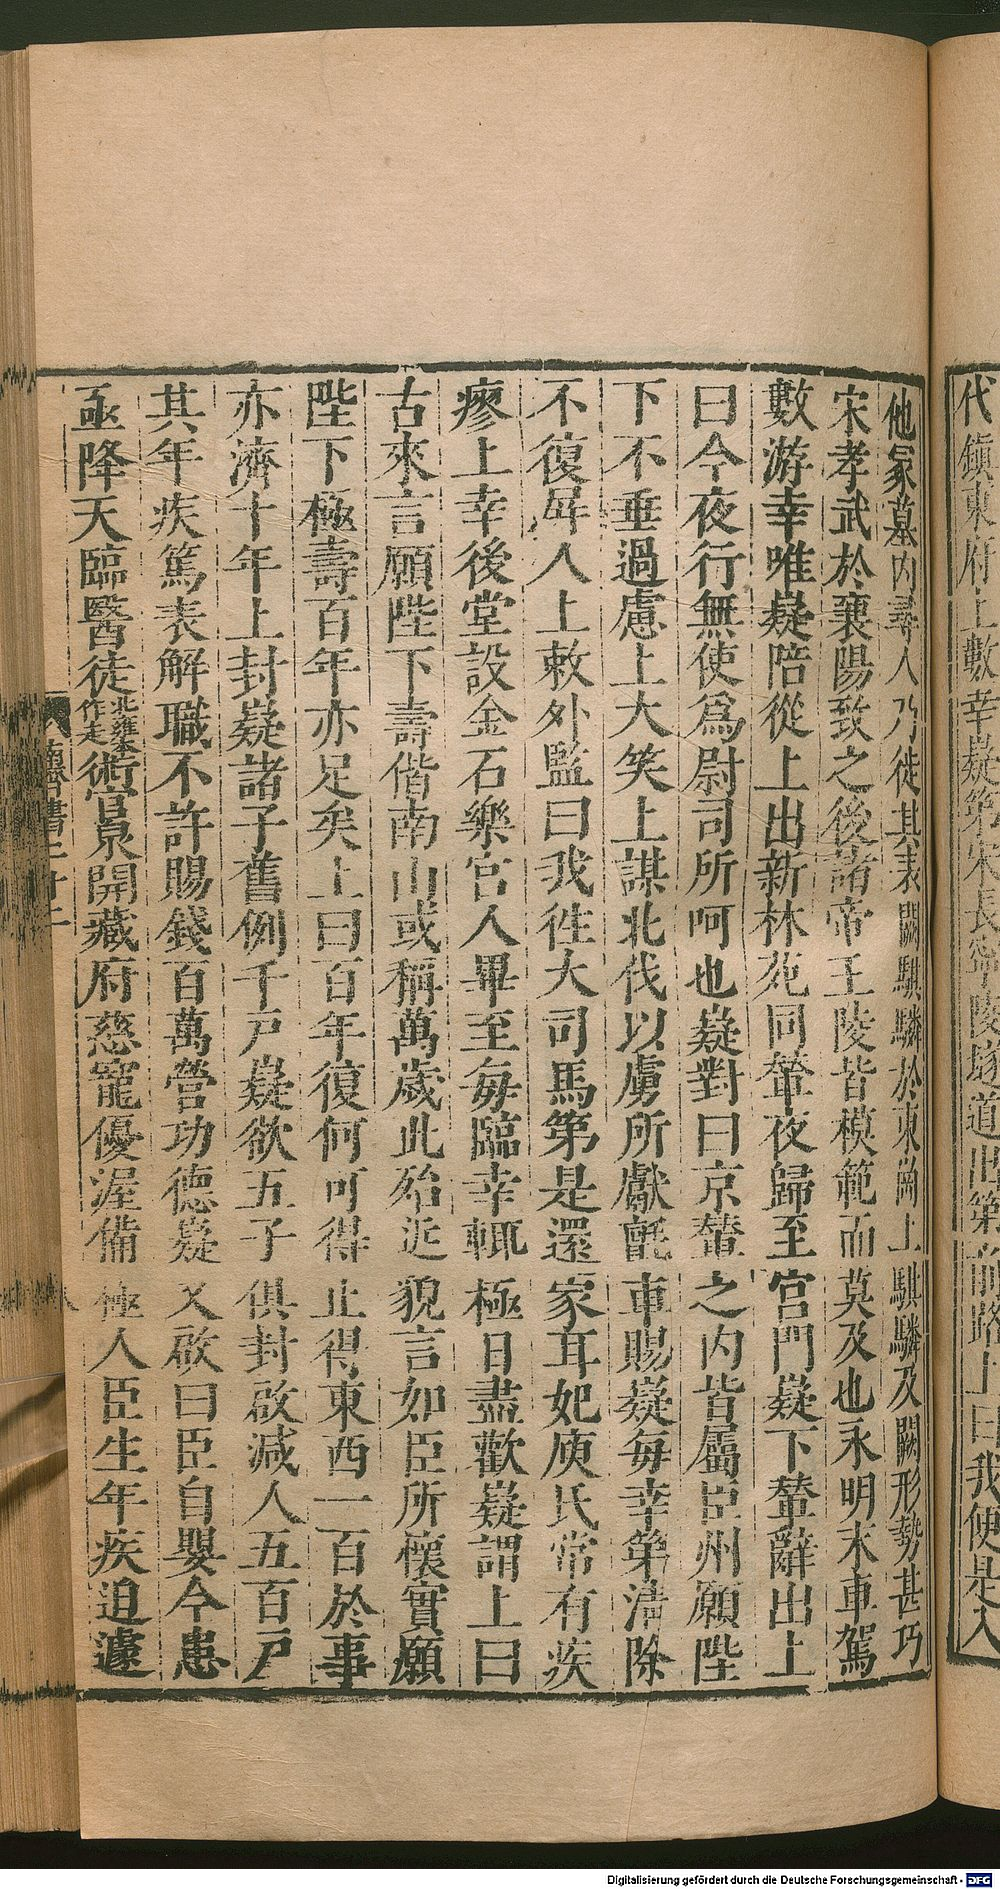 代鎮東府上數幸嶷第宋長寧陵隧道出第前路上曰我便是入
他冢墓内尋人乃徙其表闕騏驎於東岡上騏驎及闕形勢甚巧
宋孝武於襄陽致之後諸帝王陵皆模範而莫及也永明末車駕
數游幸唯嶷陪從上出新林苑同輦夜歸至宫門嶷下輦辭出上
曰今夜行無使爲尉司所呵也嶷對曰京輦之内皆屬臣州願陛
下不垂過慮上大笑上謀北伐以虜所獻氈車賜嶷毎幸第清除
不復屏人上敕外監曰我往大司馬第是還家耳妃庾氏常有疾
瘳上幸後堂設金石樂宫人畢至毎臨幸輒極日盡歡嶷謂上曰
古來言願陛下壽偕南山或稱萬歲此殆近貌言如臣所懷實願
陛下極壽百年亦足矣上曰百年復何可得止得東西一百於事
亦濟十年上封嶷諸子舊例千戸嶷欲五子俱封啟減人五百戸
其年疾篤表解職不許賜錢百萬營功德嶷又啟曰臣自嬰今患
亟降天臨醫徒北雍本作走術官泉開藏府慈寵優渥備極人臣生年疾迫遽
南齊書二十二
八
Digitalisierung gefördert durch die Deutsche Forschungsgemeinschaft - DFG